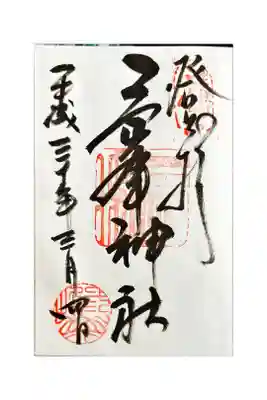 登拝
三峯神社
平成三十年三月四日